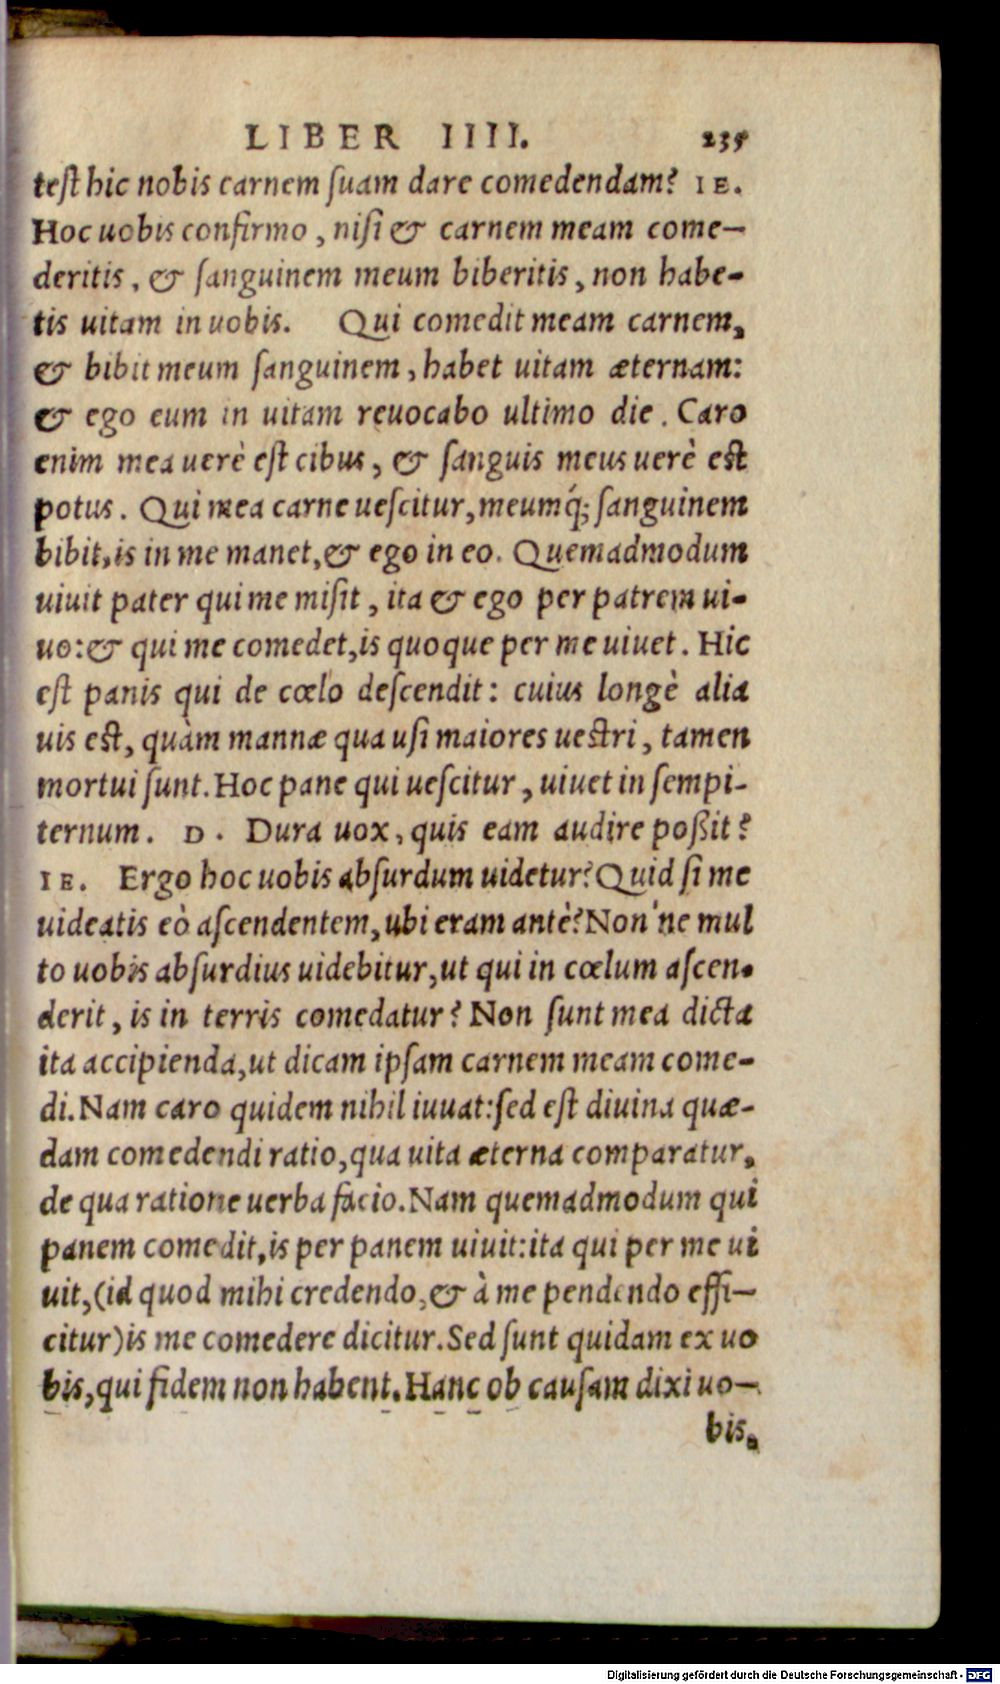 LIBER IIII. 235
test hic nobis carnem ſuam dare comedendam? IE.
Hoc uobis confirmo, niſi & carnem meam come-
deritis, & ſanguinem meum biberitis, non habe-
tis uitam in uobis. Qui comedit meam carnem,
& bibit meum ſanguinem, habet uitam æternam:
& ego eum in uitam reuocabo ultimo die. Caro
enim mea uerè eſt cibus, & ſanguis meus uerè eſt
potus. Qui mea carne ueſcitur, meumq́; ſanguinem
bibit, is in me manet, & ego in eo. Quemadmodum
uiuit pater qui me miſit, ita & ego per patrem ui-
uo: & qui me comedet, is quoque per me uiuet. Hic
eſt panis qui de cœlo deſcendit: cuius longè alia
uis eſt, quàm mannæ qua uſi maiores ueſtri, tamen
mortui ſunt. Hoc pane qui ueſcitur, uiuet in ſempi-
ternum. D. Dura uox, quis eam audire poßit?
IE. Ergo hoc uobis abſurdum uidetur? Quid ſi me
uideatis eò aſcendentem, ubi eram antè? Non'ne mul
to uobis abſurdius uidebitur, ut qui in cœlum aſcen-
derit, is in terris comedatur? Non ſunt mea dicta
ita accipienda, ut dicam ipſam carnem meam come-
di. Nam caro quidem nihil iuuat: ſed eſt diuina quæ-
dam comedendi ratio, qua uita æterna comparatur,
de qua ratione uerba facio. Nam quemadmodum qui
panem comedit, is per panem uiuit: ita qui per me ui
uit, (id quod mihi credendo, & à me pendendo effi-
citur) is me comedere dicitur. Sed ſunt quidam ex uo
bis, qui fidem non habent. Hanc ob cauſam dixi uo-
bis,
Digitalisierung gefördert durch die Deutsche Forschungsgemeinschaft - DFG